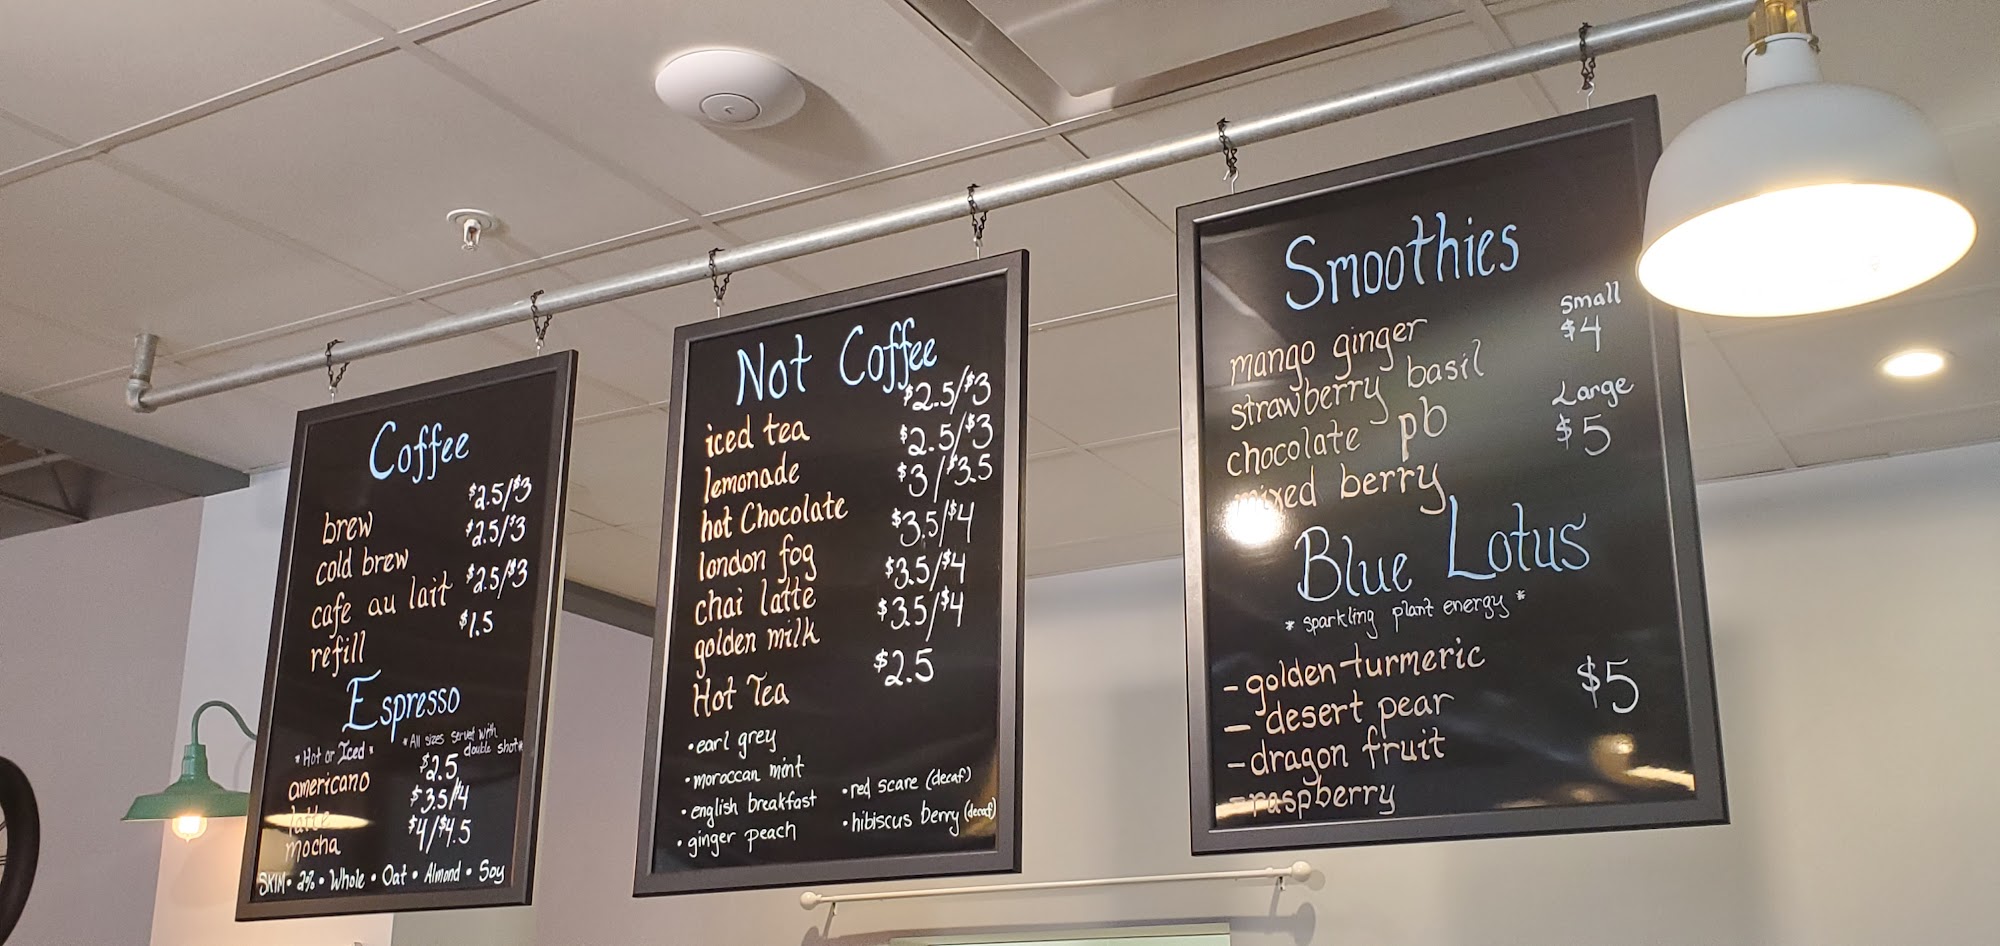 Coffee
brew $2.5/$3
cold brew $2.5/$3
cafe au lait $2.5/$3
refill $1.5
Espresso
*Hot or Iced* *All sizes served with double shot*
americano $2.5
latte $3.5/4
mocha $4/$4.5
SKIM • 2% • Whole • Oat • Almond • Soy
Not Coffee
iced tea $2.5/$3
lemonade $2.5/$3
hot Chocolate $3/$3.5
london fog $3.5/$4
chai latte $3.5/$4
golden milk $3.5/$4
Hot Tea $2.5
• earl grey
• moroccan mint
• english breakfast
• ginger peach
• red scare (decaf)
• hibiscus berry (decaf)
Smoothies
mango ginger
strawberry basil
chocolate pb
mixed berry
Small
$4
Large
$5
Blue Lotus
* sparkling plant energy *
- golden-turmeric
- desert pear
- dragon fruit
- raspberry
$5